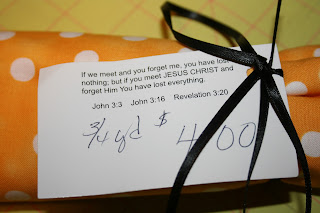 If we meet and you forget me, you have lost
nothing; but if you meet JESUS CHRIST and
forget Him You have lost everything.
John 3:3 John 3:16 Revelation 3:20
3/4 yd $ 4.00